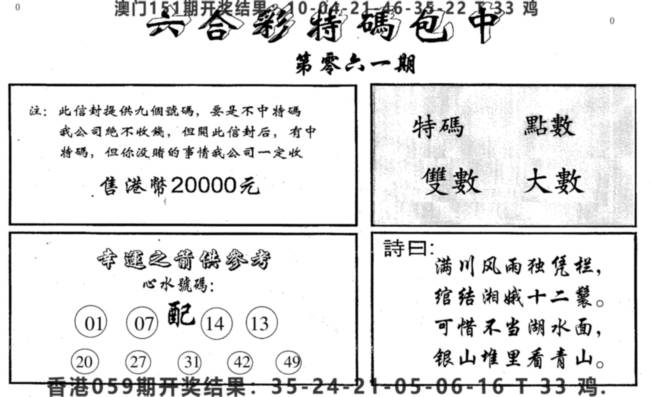 澳门151期开奖结果：10-04-21-46-35-22 T 33 鸡
六合彩特碼包中
第零六一期
注：此信封提供九個號碼，要是不中特碼
我公司绝不收錢，但開此信封后，有中
特碼，但你没賭的事情我公司一定收
售港幣20000元
特碼 點數
雙數 大數
幸運之箭供參考
心水號碼：
01 07 配 14 13
20 27 31 42 49
詩曰：
满川风雨独凭栏，
绾结湘娥十二鬟。
可惜不当湖水面，
银山堆里看青山。
香港059期开奖结果：35-24-21-05-06-16 T 33 鸡.